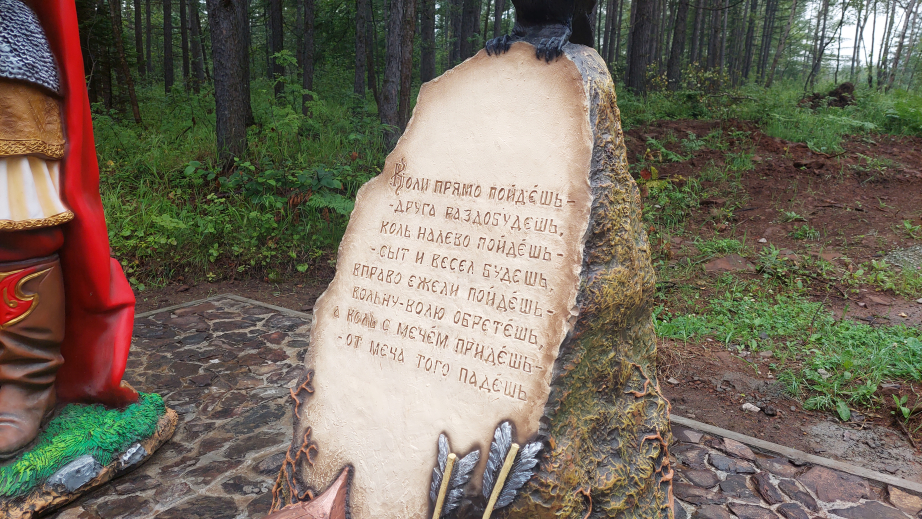 Коли прямо пойдёшь-
-друга раздобудешь,
коль налево пойдёшь-
-сыт и весел будешь,
вправо ежели пойдёшь,
вольну-волю обретёшь,-
а коль с мечём придёшь-
-от меча того падёшь.